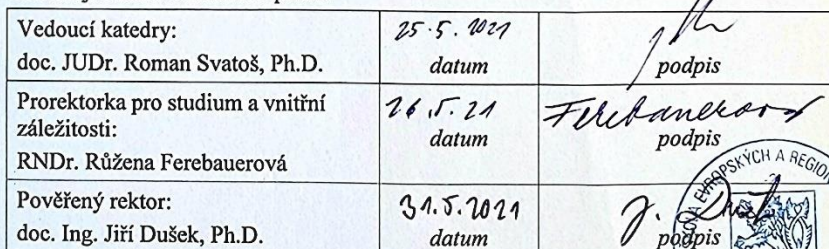 Vedoucí katedry:
doc. JUDr. Roman Svatoš, Ph.D.
25.5.2021
datum
podpis
Prorektorka pro studium a vnitřní
záležitosti:
RNDr. Růžena Ferebauerová
26.5.21
datum
Ferebauerová
podpis
Pověřený rektor:
doc. Ing. Jiří Dušek, Ph.D.
31.5.2021
datum
J.
podpis
EVROPSKÝCH A REGION